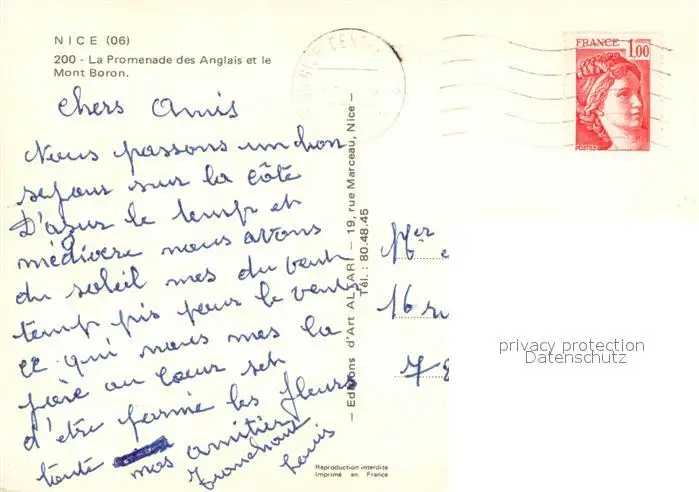 NICE (06)
200 - La Promenade des Anglais et le
Mont Boron.
chers Amis
Nous passons un bon
sejour sur la côte
D'azur le temp et
médiocre nous avons
du soleil mes du vent
temp pis pour le vent
ce qui nous mes la
joie au coeur set
d'etre parmé les fleurs
toute mos amitiés
Louis
- Editions d'Art ALTARI - 19, rue Marceau, Nice -
Tél. : 80.48.45
FRANCE 1,00
POSTES
16 ru
privacy protection
Datenschutz
Reproduction interdite
Imprimé en France